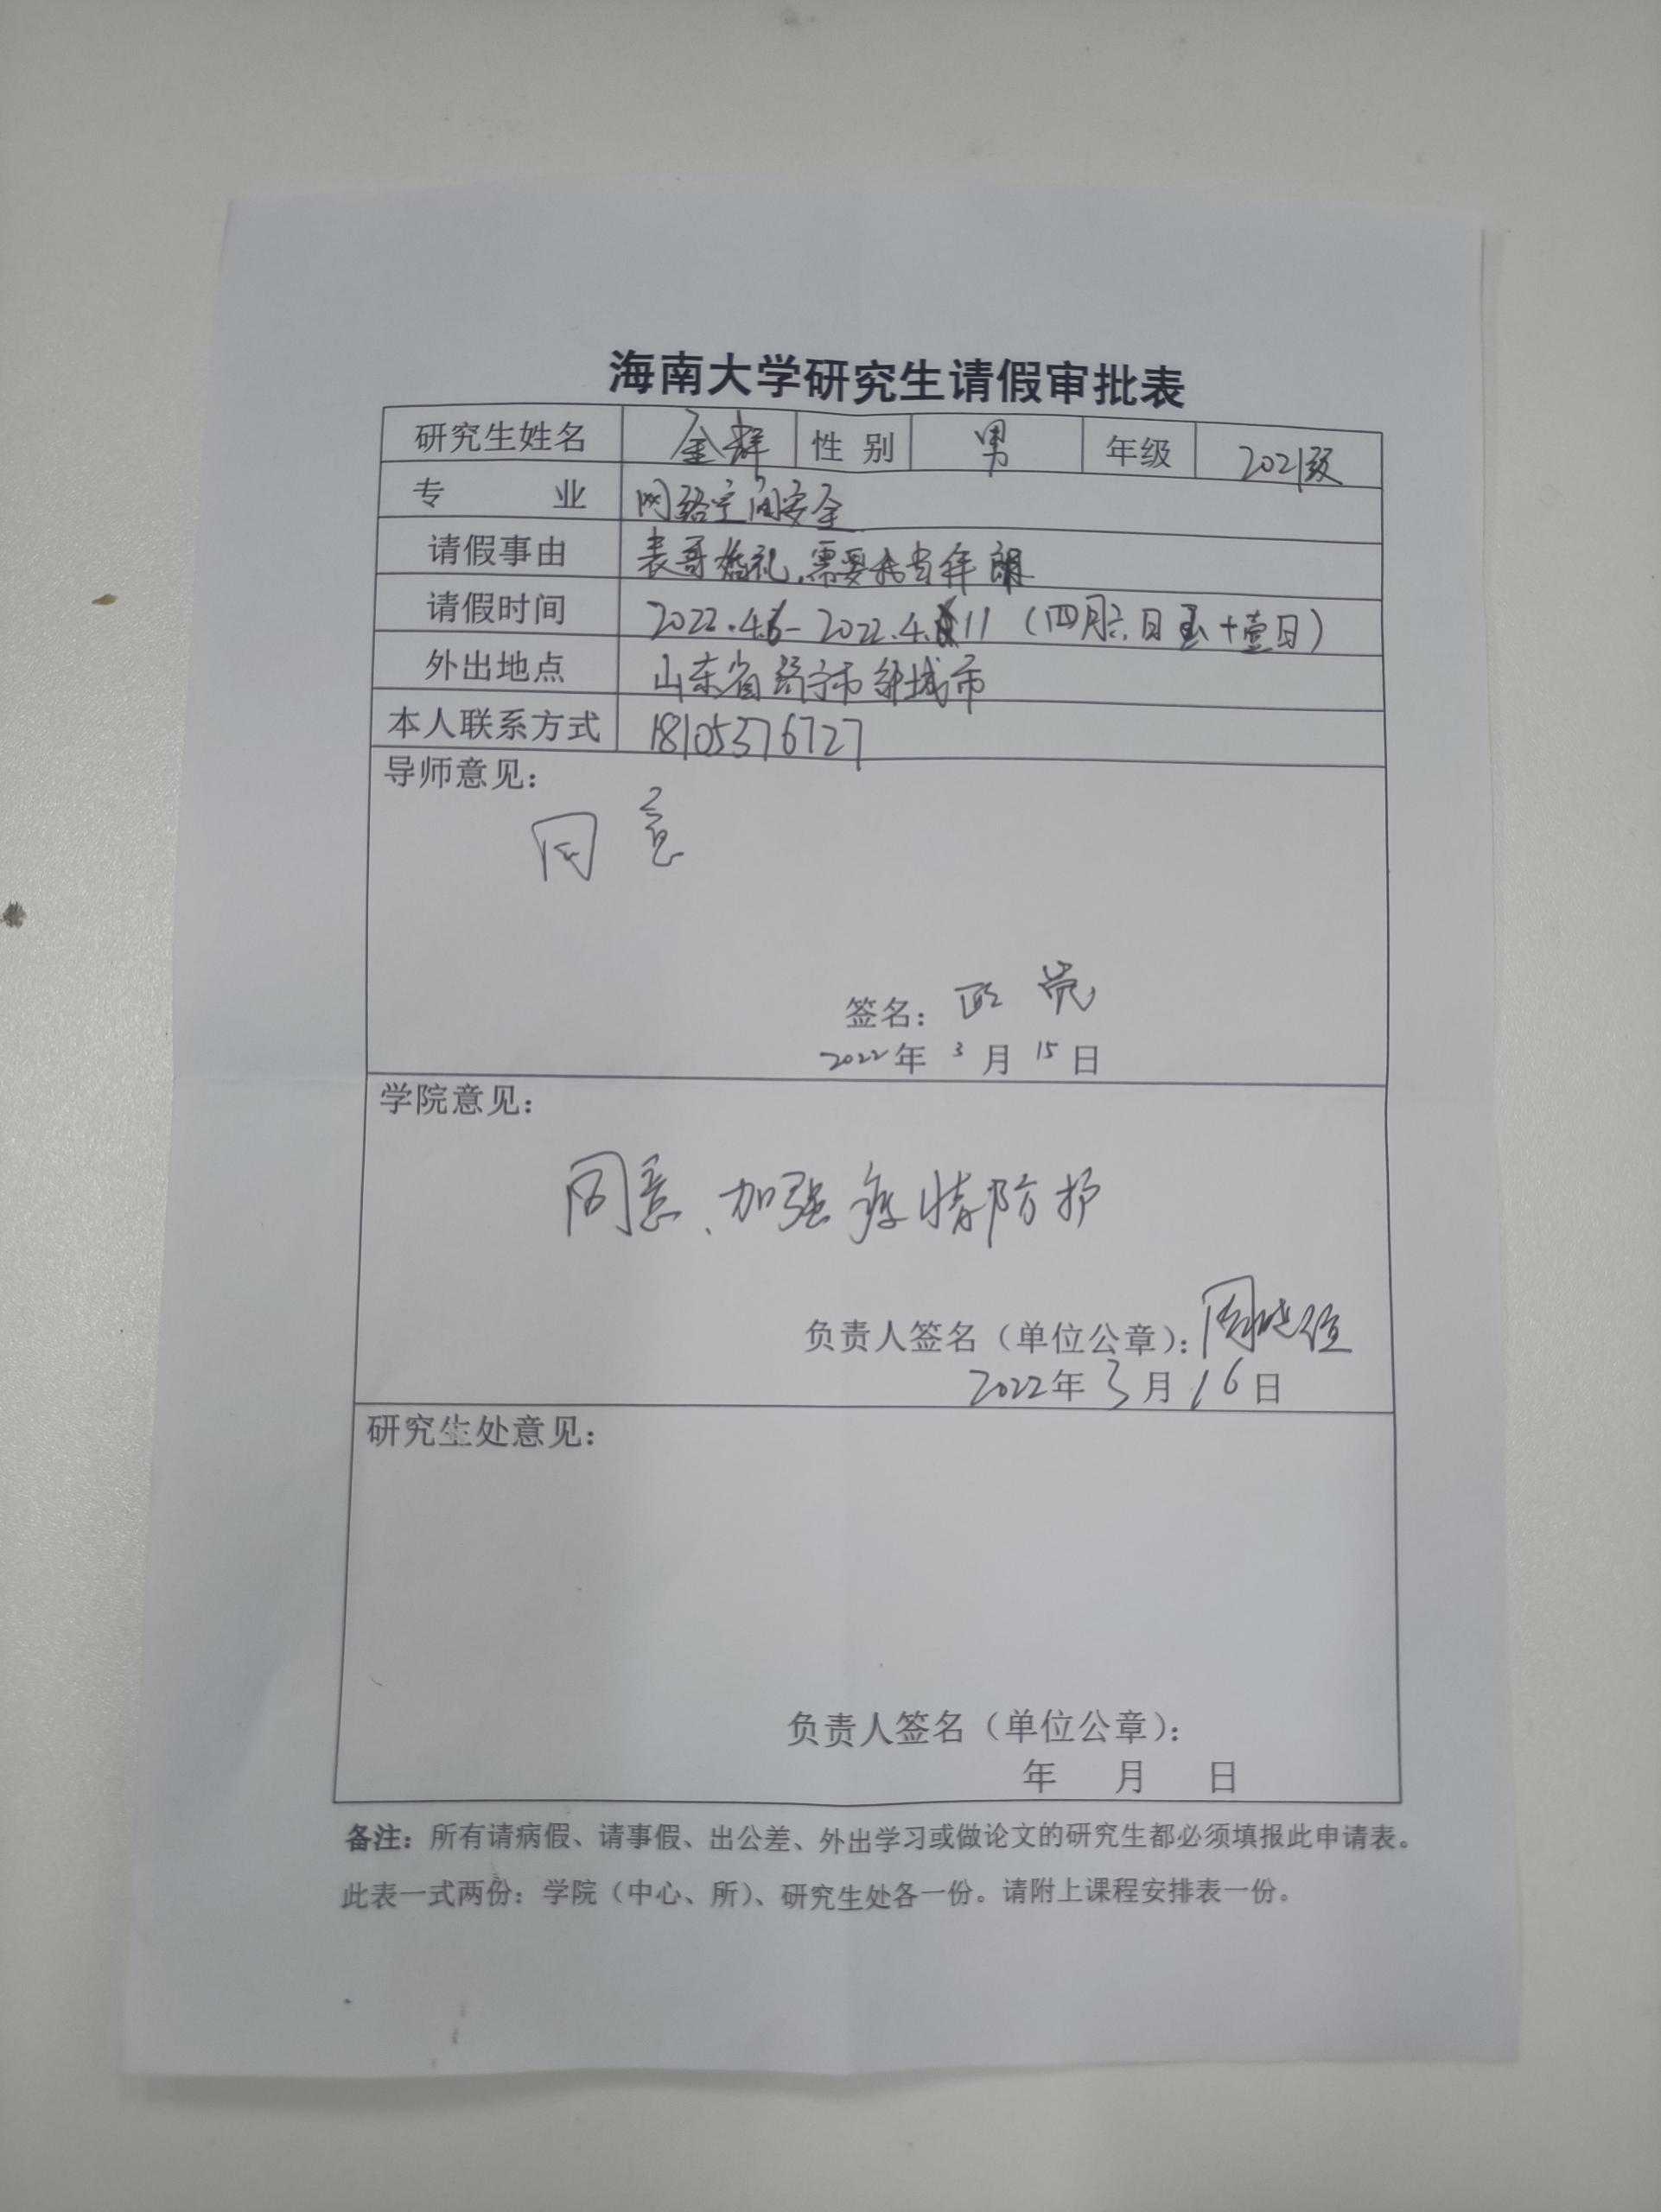 海南大学研究生请假审批表
研究生姓名 金群 性别 男 年级 2021级
专业 网络空间安全
请假事由 表哥婚礼,需要我当伴郎
请假时间 2022.4.6-2022.4.11(四月六日至十壹日)
外出地点 山东省济宁市邹城市
本人联系方式 18105376727
导师意见:
同意
签名:
2022年3月15日
学院意见:
同意、加强疫情防护
负责人签名(单位公章):周晓
2022年3月16日
研究生处意见:
负责人签名(单位公章):
年 月 日
备注:所有请病假、请事假、出公差、外出学习或做论文的研究生都必须填报此申请表。
此表一式两份:学院(中心、所)、研究生处各一份。请附上课程安排表一份。